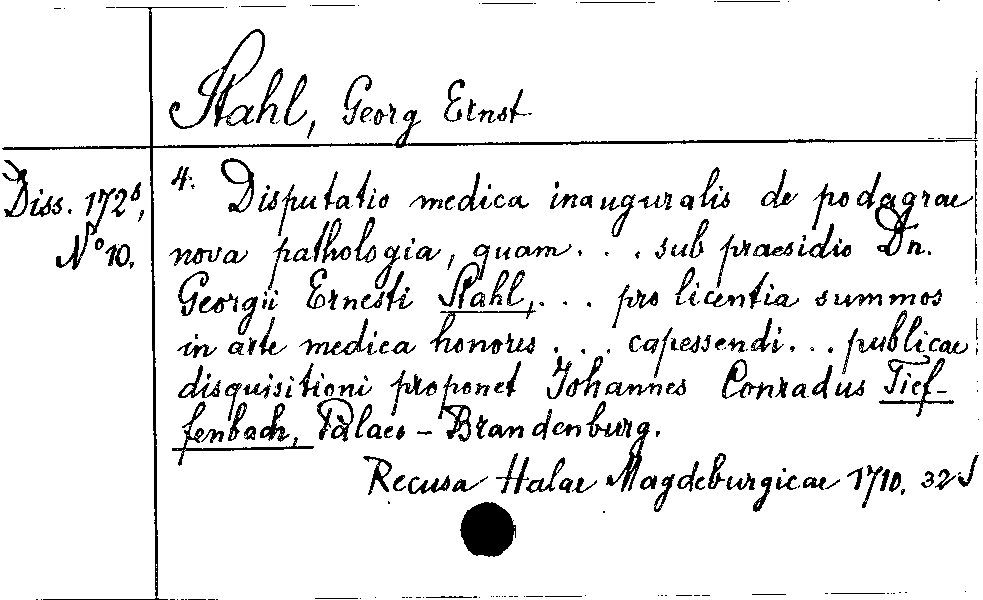 Stahl, Georg Ernst
Diss. 172⁸,
N° 10.
4. Disputatio medica inauguralis de podagrae
nova pathologia, quam . . . sub praesidio Dn.
Georgii Ernesti Stahl, . . . pro licentia summos
in arte medica honores . . . capessendi . . . publicae
disquisitioni proponet Johannes Conradus Tief-
fenbach, Palaeo-Brandenburg.
Recusa Halae Magdeburgicae 1710. 32 S